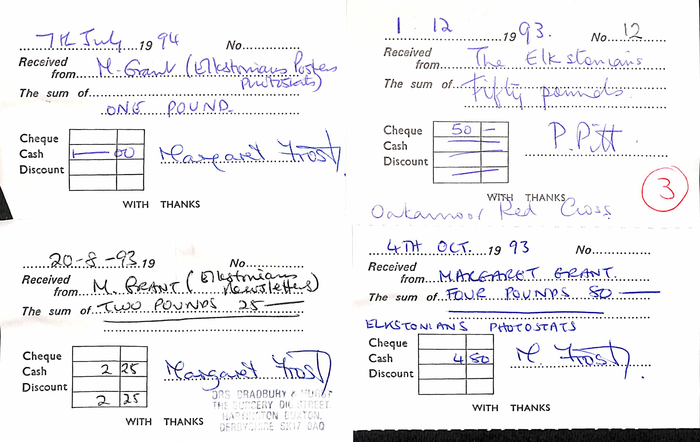 7th July 1994 No.
Received from M. Grant (Elkstonians Posters Photostats)
The sum of
ONE POUND.
Cheque
Cash 1 — 00
Discount
Margaret Frost
WITH THANKS
1. 12 1993. No. 12
Received from The Elkstonians
The sum of Fifty pounds.
Cheque 50 —
Cash
Discount
P. Pitt
WITH THANKS
Oakamoor Red Cross
3
20-8-93. 19 No.
Received from M. GRANT (Elkstonians Newsletters)
The sum of TWO POUNDS 25 —
Cheque
Cash 2 25
Discount
2 25
Margaret Frost
DRS BRADBURY &
THE SURGERY DIG STREET
HARTINGTON BUXTON.
DERBYSHIRE SK17 0AQ
WITH THANKS
4TH OCT. 1993 No.
Received from MARGARET GRANT
The sum of FOUR POUNDS 50 —
ELKSTONIANS PHOTOSTATS
Cheque
Cash 4 50
Discount
M. Frost
WITH THANKS